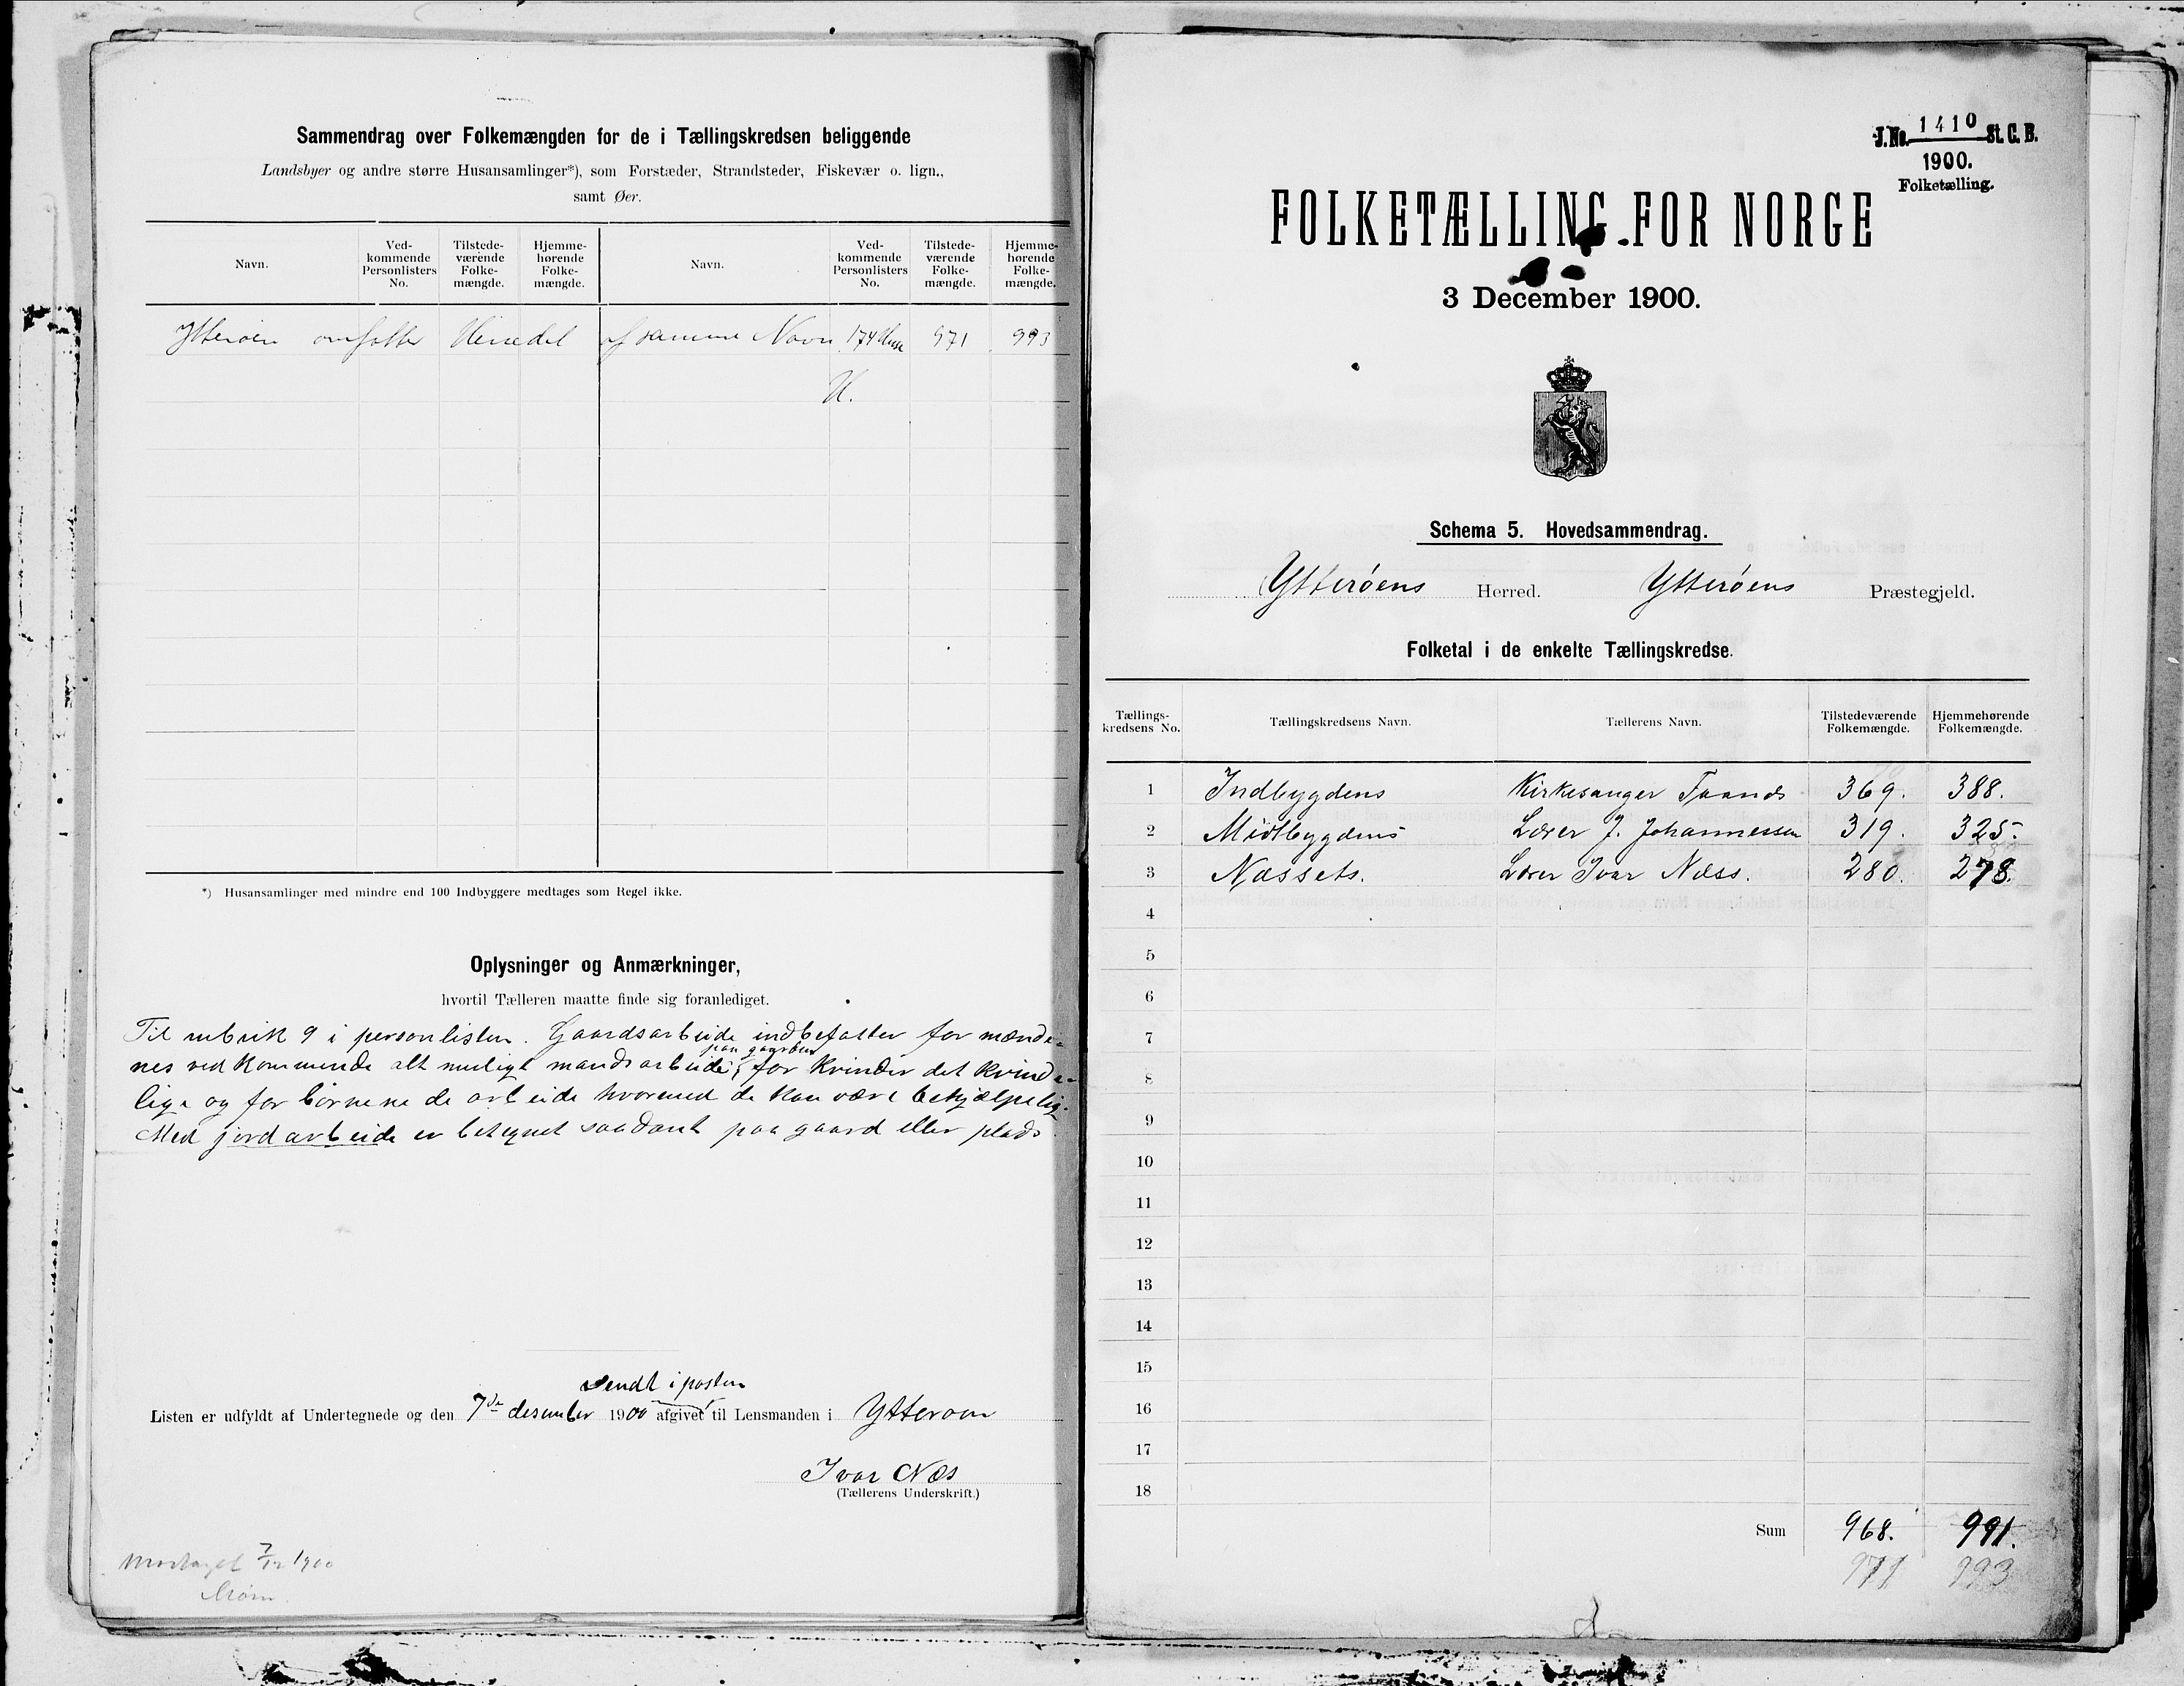 Sammendrag over Folkemængden for de i Tællingskredsen beliggende
Landsbyer og andre større Husansamlinger*), som Forstæder, Strandsteder, Fiskevær o. lign.,
samt Øer.
Navn. Ved-kommende Personlisters No. Tilstede-værende Folke-mængde. Hjemme-hørende Folke-mængde. Navn. Ved-kommende Personlisters No. Tilstede-værende Folke-mængde. Hjemme-hørende Folke-mængde.
Ytterøen omfatter Herredet af samme Navn 174 Huse 971 993
*) Husansamlinger med mindre end 100 Indbyggere medtages som Regel ikke.
Oplysninger og Anmærkninger,
hvortil Tælleren maatte finde sig foranlediget.
Til rubrik 9 i personlisten. Gaardsarbeide indbefatter for mænde-
paa gaarden
nes ved kommende alt muligt mandsarbeide, for kvinder det kvinde-
lige og for børnene de arbeide hvormed de kan være behjælpelig.
Med jordarbeide er betegnet saadant paa gaard eller plads
sendt i posten
Listen er udfyldt af Undertegnede og den 7de desember 1900 afgivet til Lensmanden i Ytterøen
Ivar Næs
(Tællerens Underskrift.)
Modtaget 7/12 1900
J.No. 1410 St. C. B.
1900.
Folketælling.
FOLKETÆLLING FOR NORGE
3 December 1900.
Schema 5. Hovedsammendrag.
Ytterøens Herred. Ytterøens Præstegjeld.
Folketal i de enkelte Tællingskredse.
Tællings-kredsens No. Tællingskredsens Navn. Tællerens Navn. Tilstedeværende Folkemængde. Hjemmehørende Folkemængde.
1 Indbygdens Kirkesanger 369. 388.
2 Midtbygdens Lærer J. Johannessen 319. 325.
3 Næssets. Lærer Ivar Næss. 280. 278.
4
5
6
7
8
9
10
11
12
13
14
15
16
17
18
Sum 968. 991.
971 993